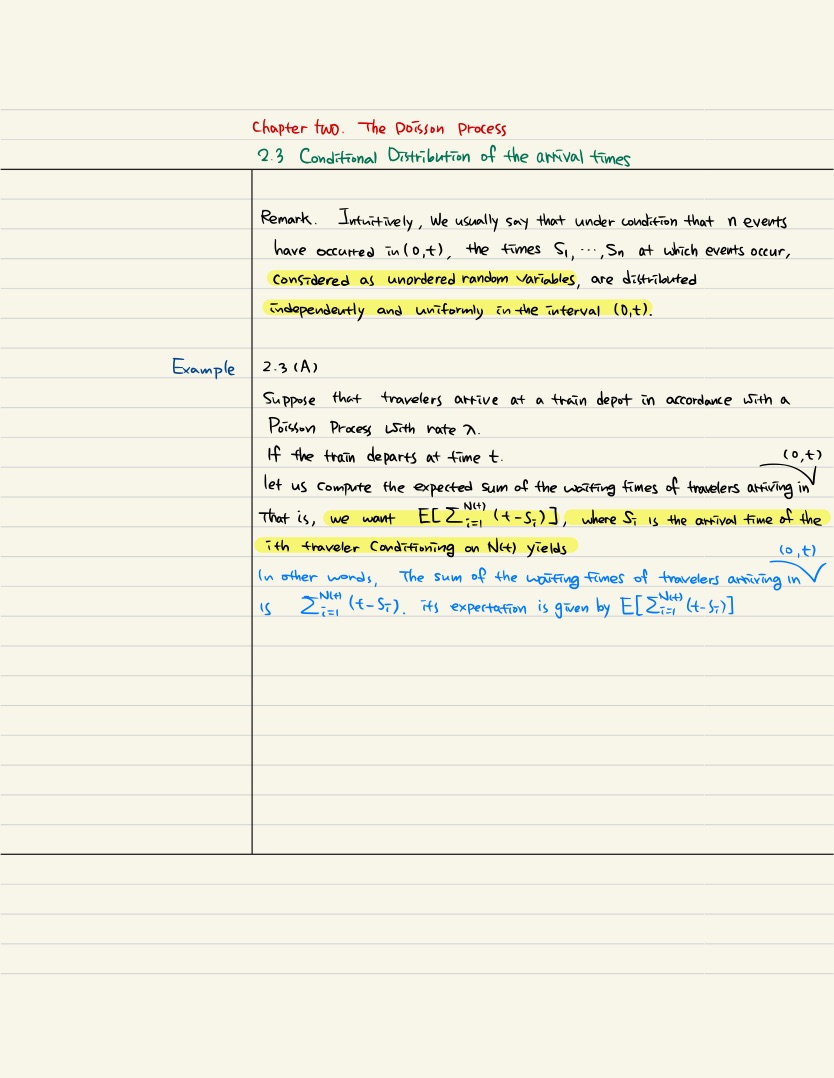 Chapter two. The Poisson Process
2.3 Conditional Distribution of the arrival times
Remark. Intuitively, We usually say that under condition that n events
have occurred in (0,t), the times S₁, ⋯, Sn at which events occur,
considered as unordered random variables, are distributed
independently and uniformly in the interval (0,t).
Example 2.3 (A)
Suppose that travelers arrive at a train depot in accordance with a
Poisson Process with rate λ.
If the train departs at time t.
(0,t)
let us compute the expected sum of the waiting times of travelers arriving in
That is, we want E[∑_{i=1}^{N(t)} (t-Sᵢ)], where Sᵢ is the arrival time of the
ith traveler Conditioning on N(t) yields
(0,t)
In other words, The sum of the waiting times of travelers arriving in
is ∑_{i=1}^{N(t)} (t-Sᵢ). its expectation is given by E[∑_{i=1}^{N(t)} (t-Sᵢ)]